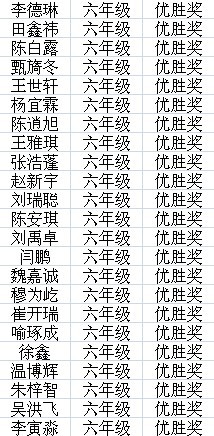 李德琳 六年级 优胜奖
田鑫祎 六年级 优胜奖
陈白露 六年级 优胜奖
甄旖冬 六年级 优胜奖
王世轩 六年级 优胜奖
杨宜霖 六年级 优胜奖
陈逍旭 六年级 优胜奖
王雅琪 六年级 优胜奖
张浩蓬 六年级 优胜奖
赵新宇 六年级 优胜奖
刘瑞聪 六年级 优胜奖
陈安琪 六年级 优胜奖
刘禹卓 六年级 优胜奖
闫鹏 六年级 优胜奖
魏嘉诚 六年级 优胜奖
穆为屹 六年级 优胜奖
崔开瑞 六年级 优胜奖
喻琢成 六年级 优胜奖
徐鑫 六年级 优胜奖
温博辉 六年级 优胜奖
朱梓智 六年级 优胜奖
吴洪飞 六年级 优胜奖
李寅淼 六年级 优胜奖